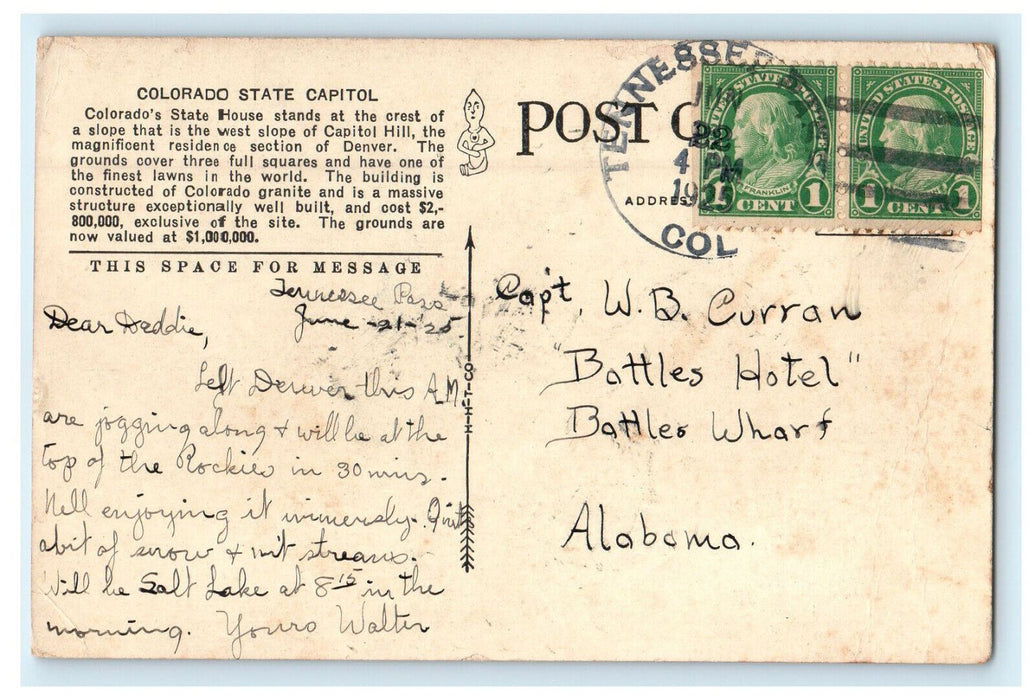 COLORADO STATE CAPITOL
Colorado's State House stands at the crest of
a slope that is the west slope of Capitol Hill, the
magnificent residence section of Denver. The
grounds cover three full squares and have one of
the finest lawns in the world. The building is
constructed of Colorado granite and is a massive
structure exceptionally well built, and cost $2,-
800,000, exclusive of the site. The grounds are
now valued at $1,000,000.
THIS SPACE FOR MESSAGE
Tennessee Pass
June -21-25
Dear Deddie,
Left Denver this A.M.
are jogging along & will be at the
top of the Rockies in 30 mins.
Nell enjoying it immensly. Quite
a bit of snow & streams.
Will be Salt Lake at 8 15 in the
morning. Yours Walter
H-H-T-CO
POST C
ADDRES
TENNESSEE
22
4 PM
192
COL
UNITED STATES POSTAGE
FRANKLIN
1 CENT 1
UNITED STATES POSTAGE
1 CENT 1
Capt. W. B. Curran
"Battles Hotel"
Battles Wharf
Alabama.